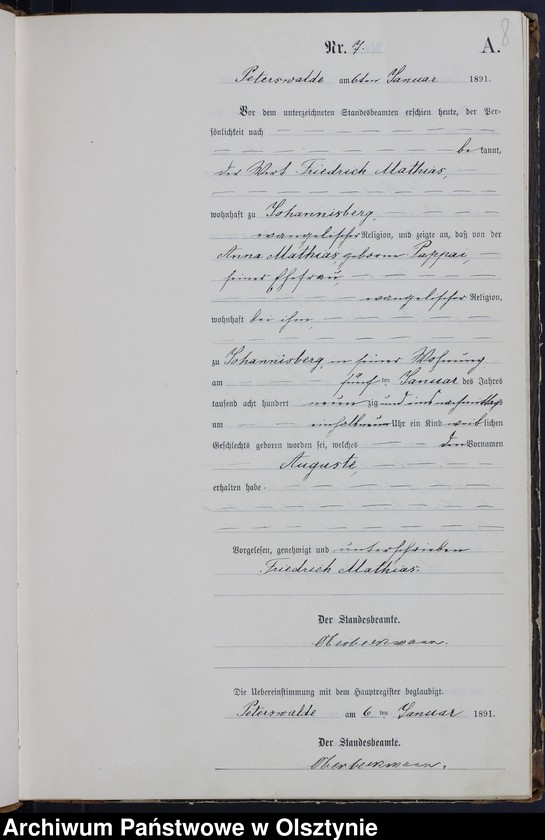 8
Nr. 7. A.
Peterswalde am 6ten Januar 1891.
Vor dem unterzeichneten Standesbeamten erschien heute, der Per-
sönlichkeit nach
be kannt,
der Wirt Friedrich Mathias,
wohnhaft zu Johannisberg,
evangelischer Religion, und zeigte an, daß von der
Anna Mathias, geborne Pappai,
seiner Ehefrau,
evangelischer Religion,
wohnhaft bei ihm,
zu Johannisberg, in seiner Wohnung
am fünften Januar des Jahres
tausend acht hundert neunzig und eins nachmittags
um einhalbneun Uhr ein Kind weiblichen
Geschlechts geboren worden sei, welches den Vornamen
Auguste,
erhalten habe.
Vorgelesen, genehmigt und unterschrieben
Friedrich Mathias.
Der Standesbeamte.
Die Uebereinstimmung mit dem Hauptregister beglaubigt.
Peterswalde am 6ten Januar 1891.
Der Standesbeamte.
Archiwum Państwowe w Olsztynie